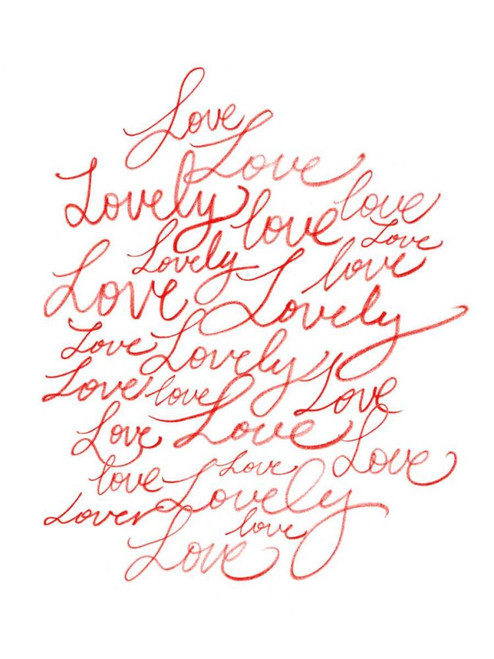 Love
Love
Lovely love love
Lovely Love
Love Lovely love
Love Lovely
Love love Love
Love Love Love
love Love
Lover Lovely
Love love